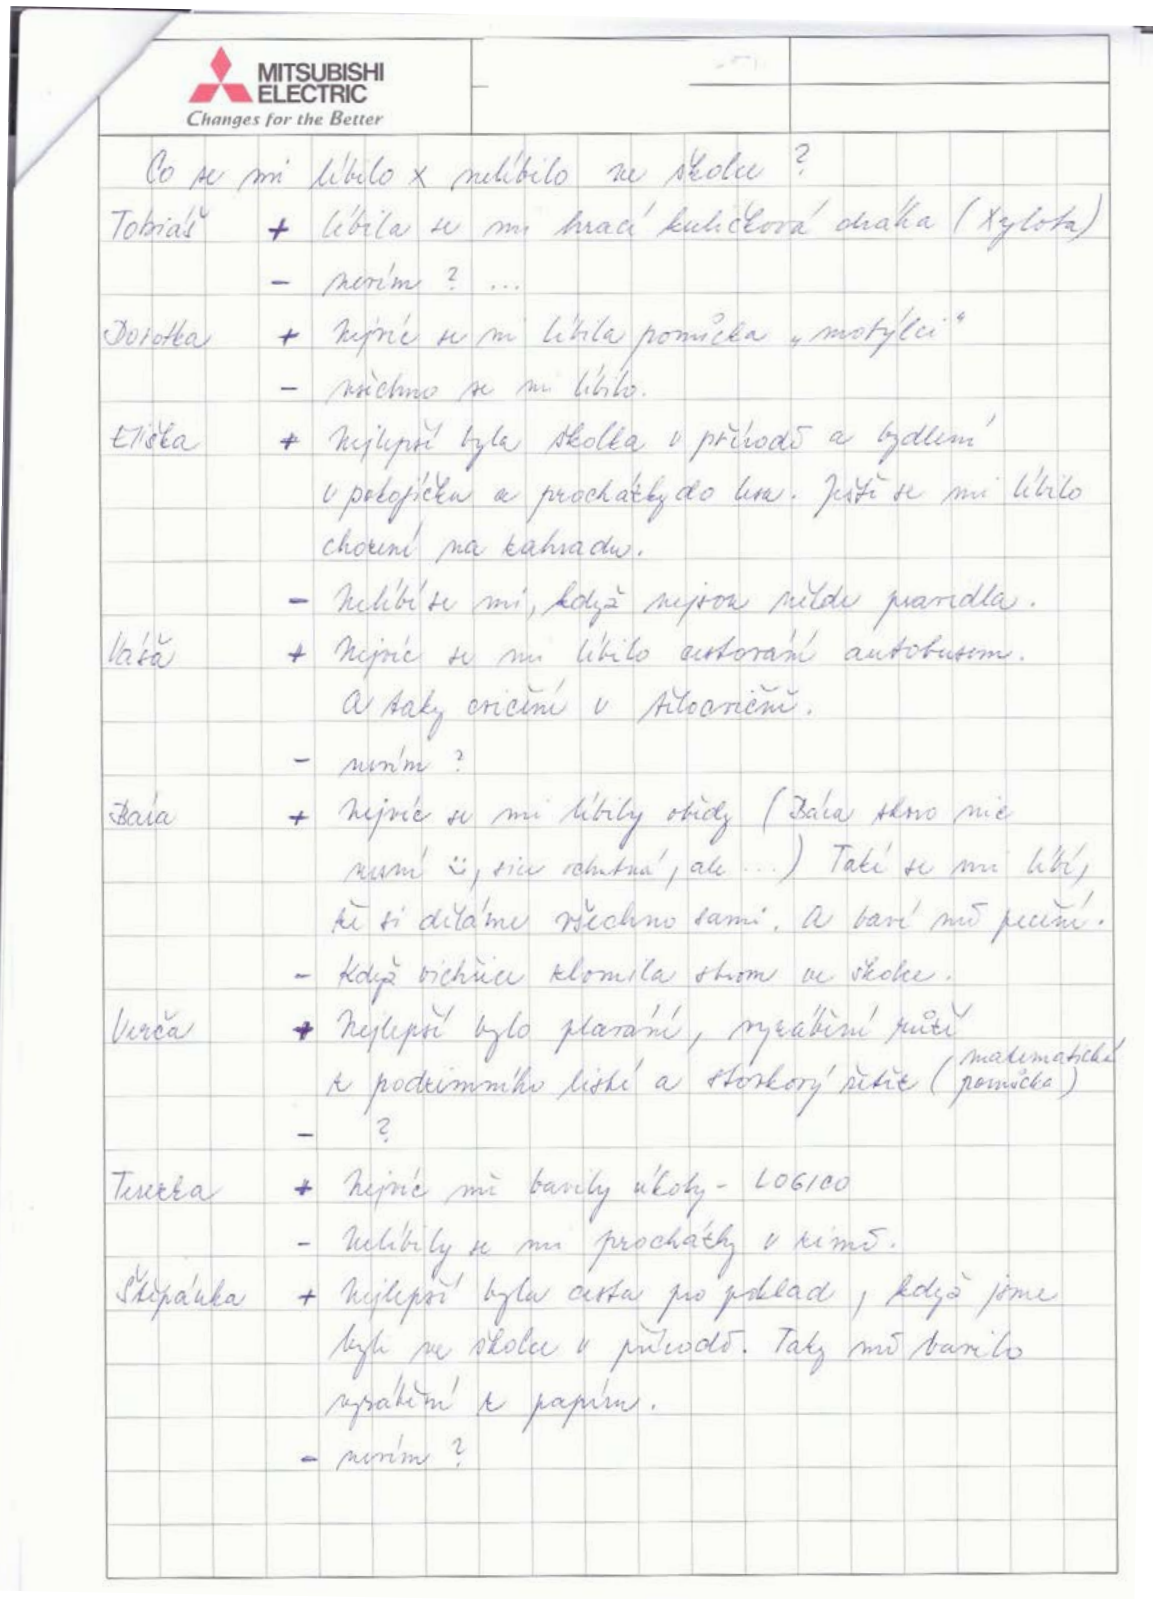 MITSUBISHI
ELECTRIC
Changes for the Better
Co se mi líbilo x nelíbilo ve školce ?
Tobiáš + líbila se mi hrací kuličková dráha (Xylofa)
- nevím ? ...
Dorotka + Nejvíc se mi líbila pomůcka „motýlci“
- všechno se mi líbilo.
Eliška + Nejlepší byla školka v přírodě a bydlení
v pokojíčku a procházky do lesa. Ještě se mi líbilo
chození na zahradu.
- Nelíbí se mi, když nejsou někde pravidla.
Váša + Nejvíc se mi líbilo cestování autobusem.
A taky cvičení v tělocvičně.
- nevím ?
Bára + Nejvíc se mi líbily obědy (Bára skoro nic
nesní ü, sice ochutná, ale ...) Také se mi líbí,
že si děláme všechno sami. A baví mě pečení.
- Když vichřice zlomila strom ve školce.
Verča + Nejlepší bylo plavání, vyrábění růží
z podzimního listí a stovkový řetěz (matematická
pomůcka)
- ?
Terezka + Nejvíc mě bavily úkoly - LOGICO
- Nelíbily se mi procházky v zimě.
Štěpánka + Nejlepší byla cesta pro poklad, když jsme
byli ve školce v přírodě. Taky mě bavilo
vyrábění z papíru.
- nevím ?